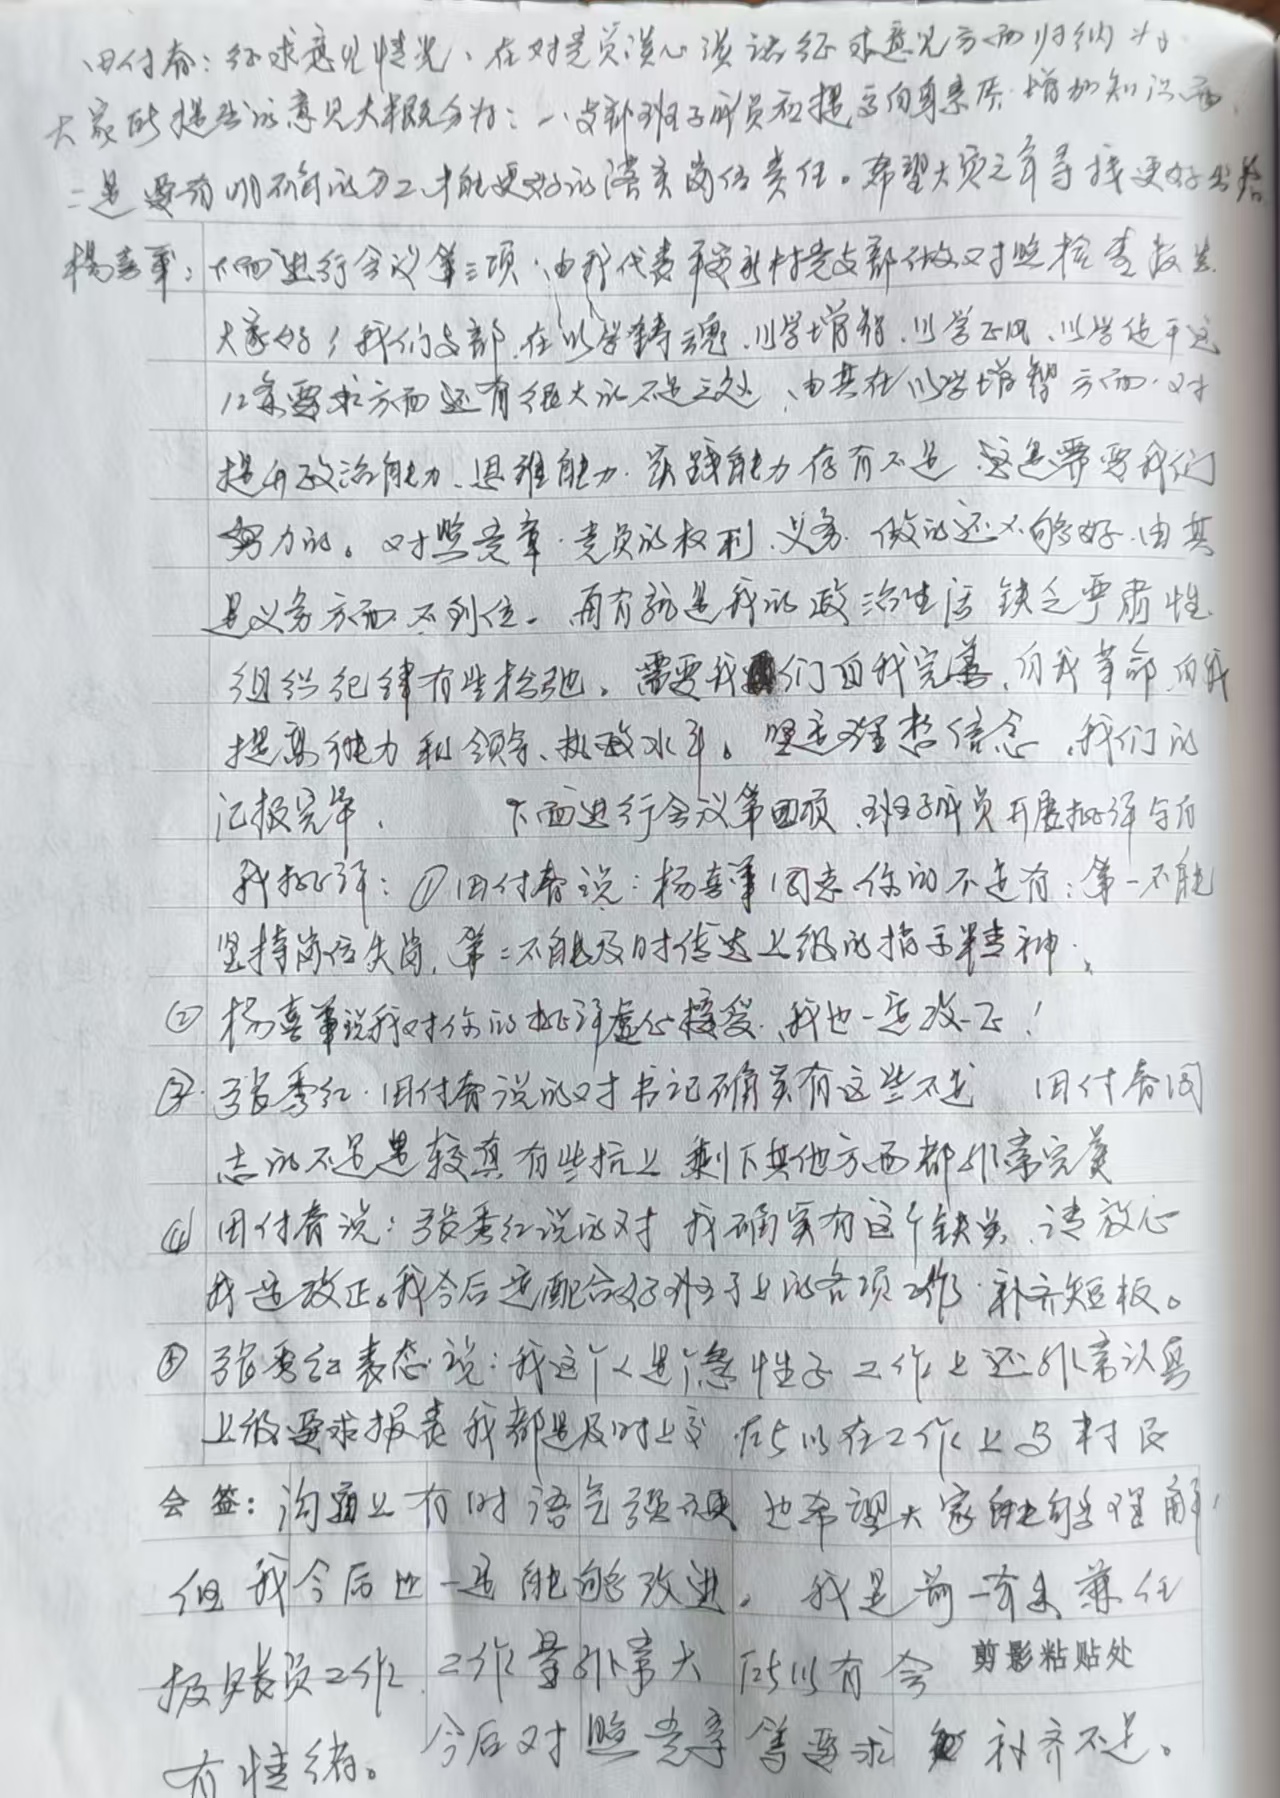 田付春：征求意见情况、在对党员谈心谈话征求意见方面归纳为
大家所提出的意见大概分为：一、支部班子成员应提高自身素质、增加知识面，
二是要有明确的分工才能更好的落实岗位责任。希望大
杨喜军：下面进行会议第三项，由我代表村党支部做对照检查报告
大家好！我们支部，在以学铸魂、以学增智、以学正风、以学促干这
12条要求方面还有很大的不足之处，由其在以学增智方面、对
提升政治能力、思维能力、实践能力存有不足，这是需要我们
努力的。对照党章、党员的权利、义务、做的还不够好，由其
是义务方面不到位。再有就是我的政治生活缺乏严肃性
组织纪律有些松弛。需要我们自我完善、自我革命、自我
提高能力和领导、执政水平。坚定理想信念，我们的
汇报完毕，下面进行会议第四项，班子成员开展批评与自
我批评：①田付春说：杨喜军同志你的不足有：第一不能
坚持岗位失岗，第二不能及时传达上级的指示精神，
②杨喜军说我对你的批评虚心接受，我也一定改正！
③张秀红：田付春说的对书记确实有这些不足 田付春同
志的不足是较真有些抗上 剩下其他方面都非常完美
④田付春说：张秀红说的对 我确实有这个缺点，请放心
我一定改正。我今后一定配合好班子上的各项工作，补齐短板。
⑤张秀红表态说：我这个人是个急性子 工作上还非常认真
上级要求报表我都是及时上交 所以在工作上与村民
会签：沟通上有时语气强硬 也希望大家能够理解，
但我今后也一定能够改进。我是兼任
报账员工作，工作量非常大 所以有会 剪影粘贴处
有情绪。今后对照党章等要求 补齐不足。